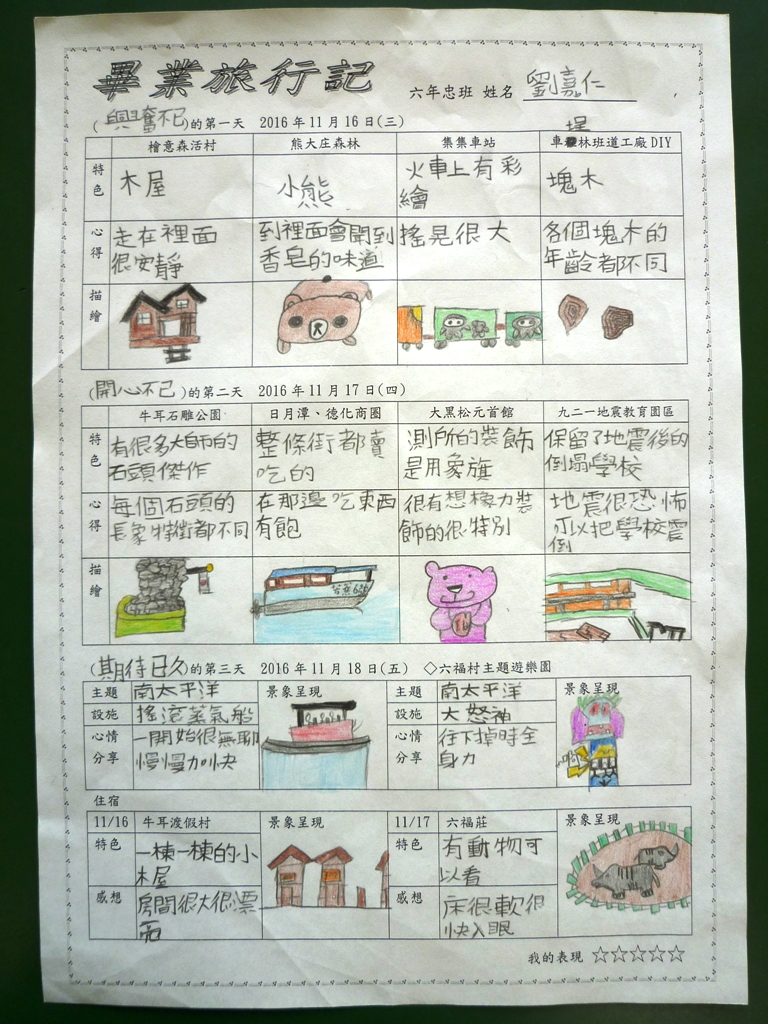 畢業旅行記
六年忠班 姓名 劉嘉仁
(興奮不已)的第一天 2016年11月16日(三)
檜意森活村 熊大庄森林 集集車站 車埕林班道工廠DIY
特色 木屋 小熊 火車上有彩繪 塊木
心得 走在裡面很安靜 到裡面會聞到香皂的味道 搖晃很大 各個塊木的年齡都不同
描繪
(開心不已)的第二天 2016年11月17日(四)
牛耳石雕公園 日月潭、德化商圈 大黑松元首館 九二一地震教育園區
特色 有很多大師的石頭傑作 整條街都賣吃的 測所的裝飾是用象旗 保留了地震後的倒塌學校
心得 每個石頭的長象特徵都不同 在那邊吃東西有飽 很有想橡力裝飾的很特別 地震很恐怖可以把學校震倒
描繪
(期待已久)的第三天 2016年11月18日(五) ◇六福村主題遊樂園
主題 南太平洋 景象呈現 主題 南太平洋 景象呈現
設施 搖滾蒸氣船 設施 大怒神
心情分享 一開始很無聊慢慢加快 心情分享 往下掉時全身力
住宿
11/16 牛耳渡假村 景象呈現 11/17 六福莊 景象呈現
特色 一棟一棟的小木屋 特色 有動物可以看
感想 房間很大很漂亮 感想 床很軟很快入眼
我的表現 ☆☆☆☆☆